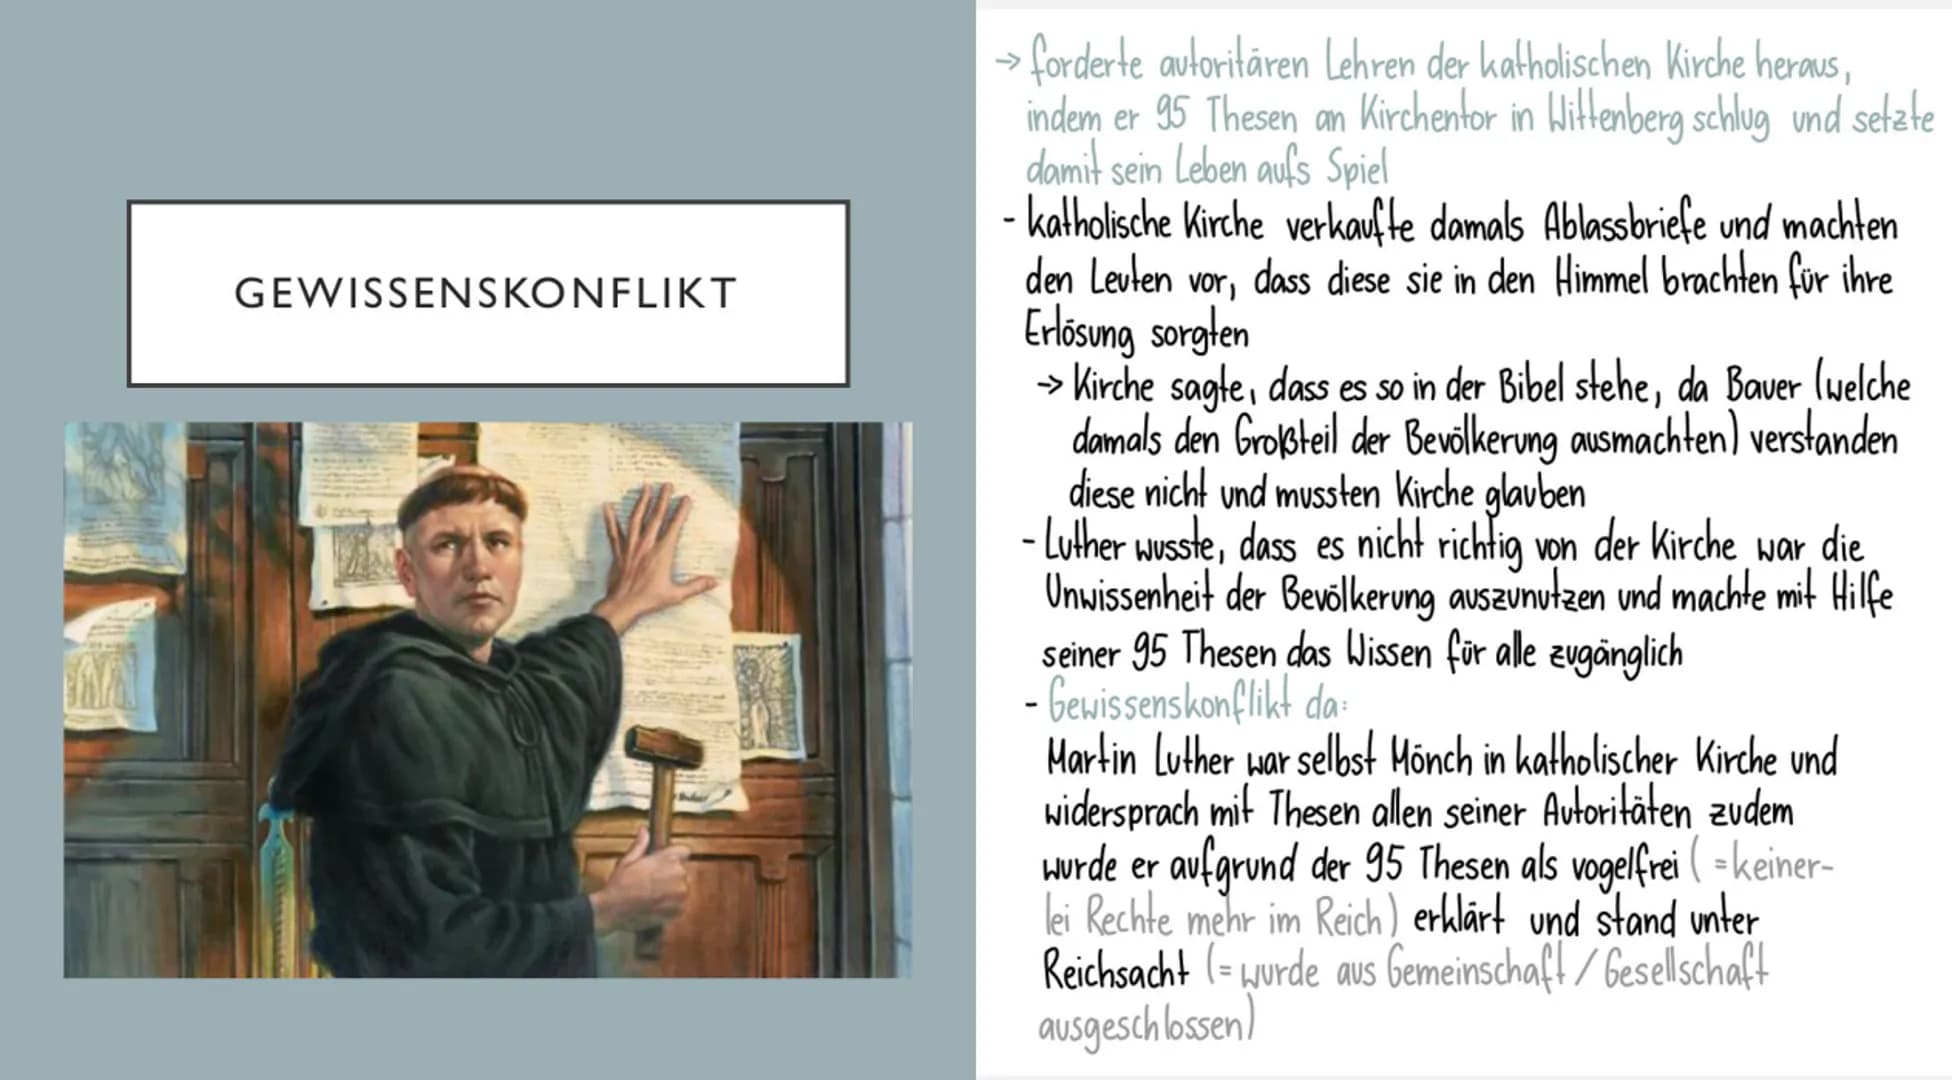 GEWISSENSKONFLIKT
→ forderte autoritären Lehren der katholischen Kirche heraus,
indem er 95 Thesen an Kirchentor in Wittenberg schlug und setzte
damit sein Leben aufs Spiel
- katholische Kirche verkaufte damals Ablassbriefe und machten
den Leuten vor, dass diese sie in den Himmel brachten für ihre
Erlösung sorgten
→ Kirche sagte, dass es so in der Bibel stehe, da Bauer (welche
damals den Großteil der Bevölkerung ausmachten) verstanden
diese nicht und mussten Kirche glauben
- Luther wusste, dass es nicht richtig von der Kirche war die
Unwissenheit der Bevölkerung auszunutzen und machte mit Hilfe
seiner 95 Thesen das Wissen für alle zugänglich
- Gewissenskonflikt da:
Martin Luther war selbst Mönch in katholischer Kirche und
widersprach mit Thesen allen seiner Autoritäten zudem
wurde er aufgrund der 95 Thesen als vogelfrei ( =keiner-
lei Rechte mehr im Reich) erklärt und stand unter
Reichsacht (= wurde aus Gemeinschaft / Gesellschaft
ausgeschlossen)